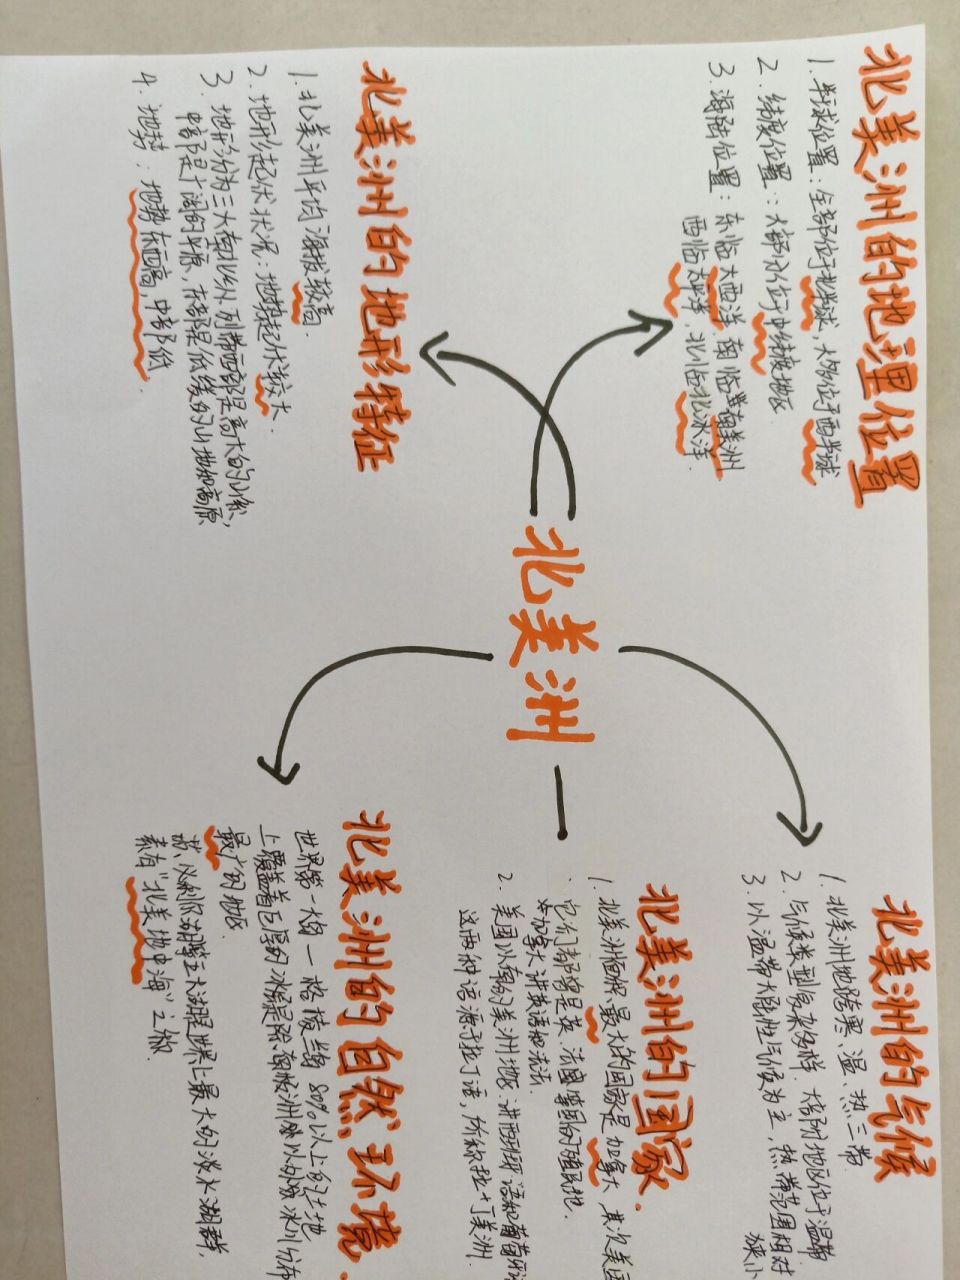 北美洲的地理位置
1. 半球位置：全部位于北半球，大部位于西半球
2. 纬度位置：大部分位于中纬度地区
3. 海陆位置：东临大西洋，南临 南美洲
西临太平洋，北临北冰洋.
北美洲的地形特征
1. 北美洲平均海拔较高.
2. 地形起伏状况：地势起伏较大.
3. 地形分为三大南北纵列带西部是高大的山系，
中部是广阔的平原，东部是低缓的山地和高原
4. 地势：地势东西高，中部低
北美洲
北美洲的气候
1. 北美洲地跨寒、温、热三带
2. 气候类型复杂多样. 大部分地区位于温带
3. 以温带大陆性气候为主，热带范围相对
狭小
北美洲的国家.
1. 北美洲面积最大的国家是加拿大 其次美国
它们都曾是英、法国等到的殖民地.
加拿大讲英语和法语.
2. 美国以南的美洲地区 讲西班牙语和葡萄牙语
这两种语源于拉丁语，俗称拉丁美洲.
北美洲的自然环境.
世界第一大岛一格陵兰岛 80%以上的土地
上覆盖着巨厚的冰层除南极洲以外 冰川分布
最广的地区
苏必利尔湖等五大湖是世界上最大的淡水湖群，
素有“北美地中海”之称.